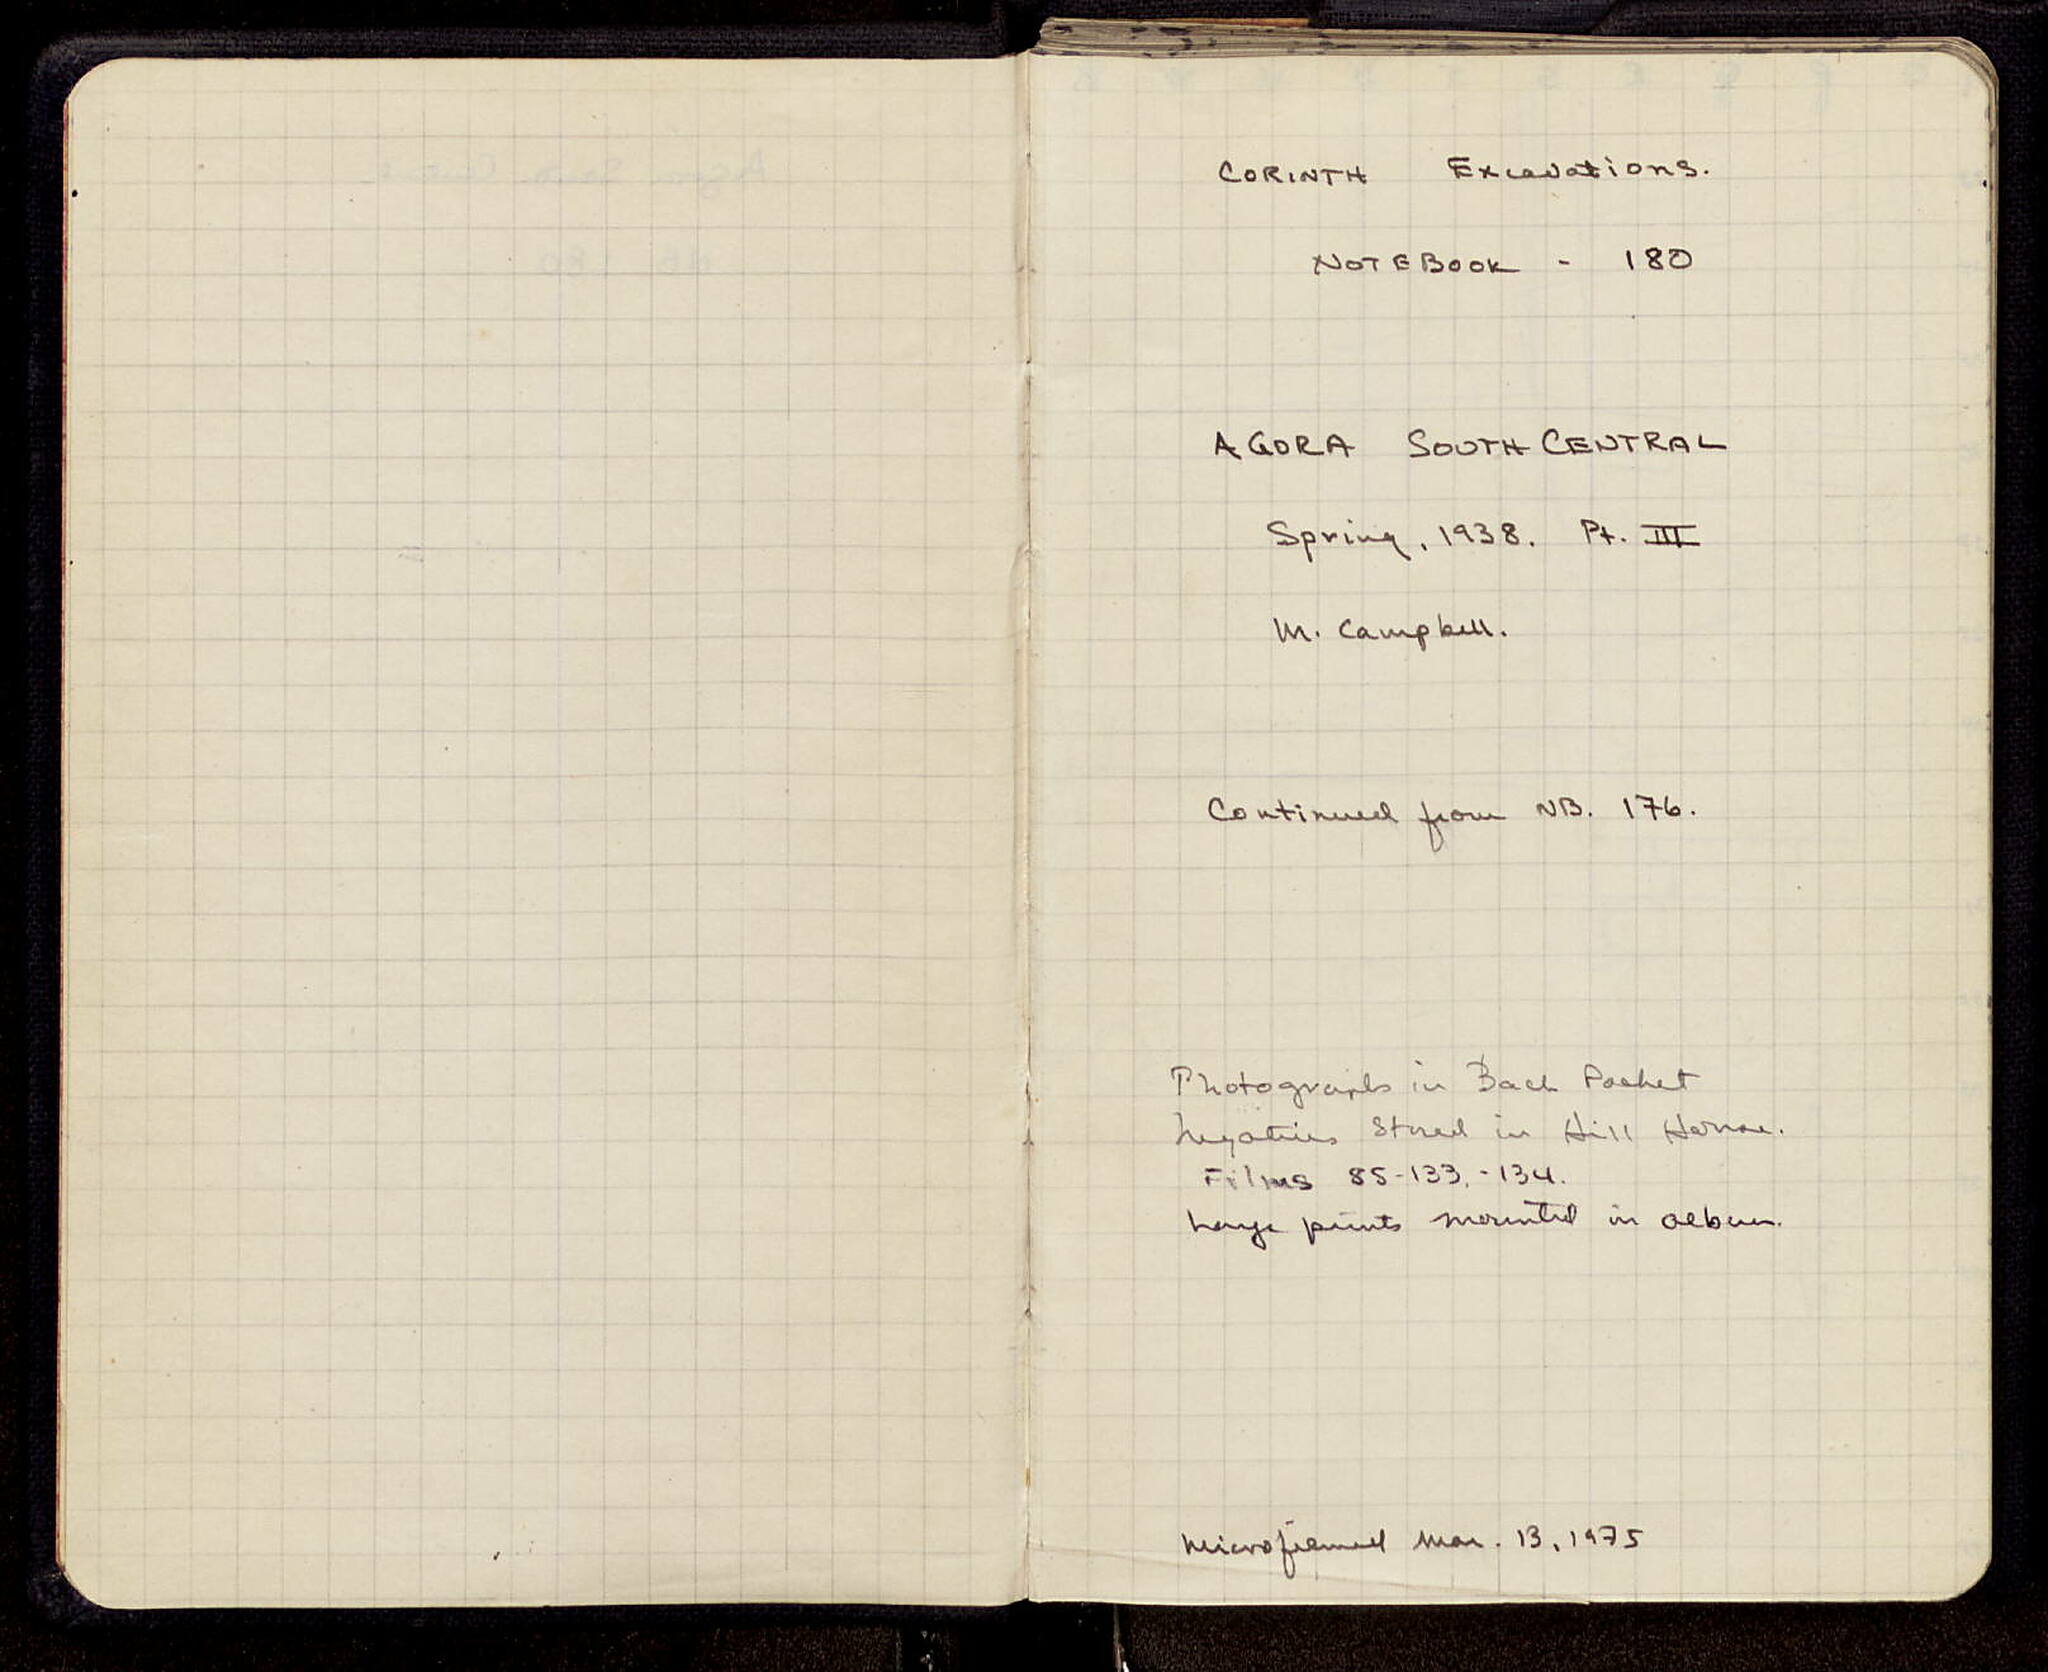 CORINTH Excavations.
NOTEBOOK - 180
AGORA SOUTH CENTRAL
Spring, 1938. Pt. III
M. Campbell.
Continued from NB. 176.
Photographs in Back Pocket
Negatives Stored in Hill House.
Films 85-133,-134.
Large prints mounted in album.
Microfilmed Mar. 13, 1975